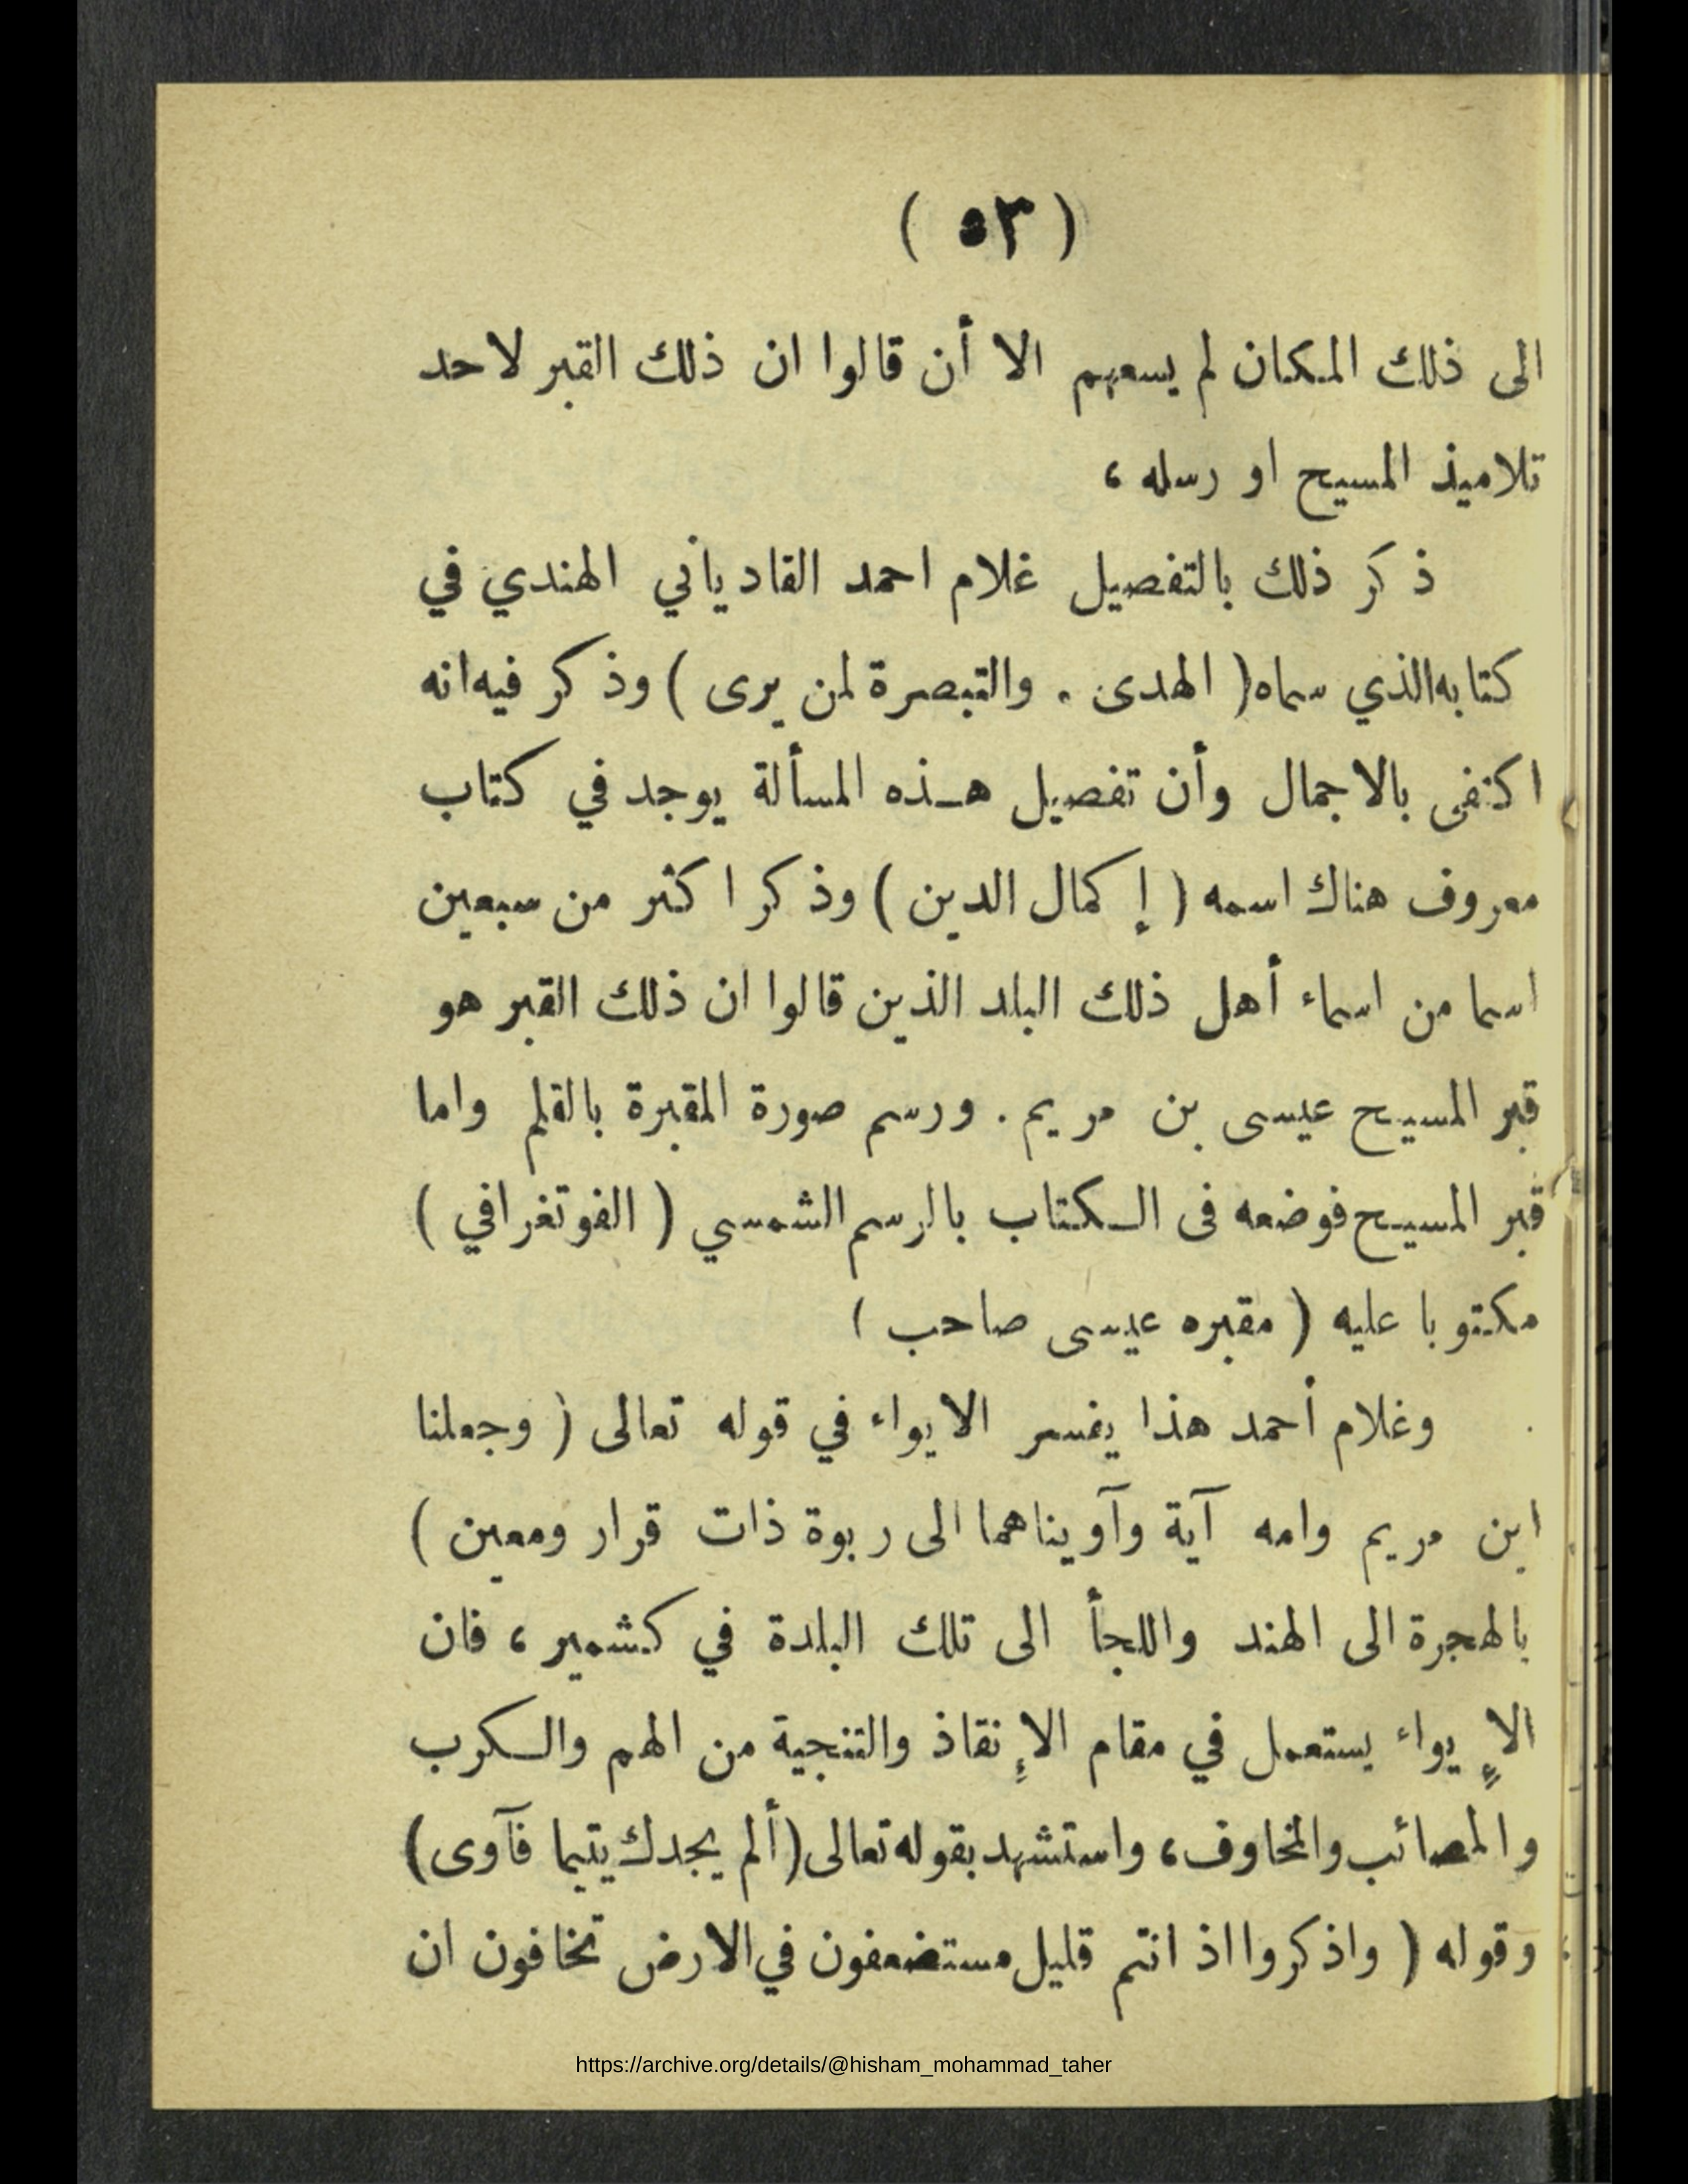 ( ٥٣ )
الى ذلك المكان لم يسعهم الا أن قالوا ان ذلك القبر لاحد
تلاميذ المسيح او رسله ،
ذكر ذلك بالتفصيل غلام احمد القادياني الهندي في
كتابه الذي سماه ( الهدى . والتبصرة لمن يرى ) وذكر فيه انه
اكتفى بالاجمال وأن تفصيل هذه المسألة يوجد في كتاب
معروف هناك اسمه ( إكمال الدين ) وذكر اكثر من سبعين
اسما من اسماء أهل ذلك البلد الذين قالوا ان ذلك القبر هو
قبر المسيح عيسى بن مريم . ورسم صورة المقبرة بالقلم واما
قبر المسيح فوضعه فى الكتاب بالرسم الشمسي ( الفوتغرافي )
مكتوبا عليه ( مقبره عيسى صاحب )
وغلام أحمد هذا يفسر الايواء في قوله تعالى ( وجعلنا
ابن مريم وامه آية وآويناهما الى ربوة ذات قرار ومعين )
بالهجرة الى الهند واللجأ الى تلك البلدة في كشمير ، فان
الإيواء يستعمل في مقام الإنقاذ والتنجية من الهم والكرب
والمصائب والمخاوف ، واستشهد بقوله تعالى ( ألم يجدك يتيما فآوى )
وقوله ( واذكروا اذ انتم قليل مستضعفون في الارض تخافون ان
https://archive.org/details/@hisham_mohammad_taher